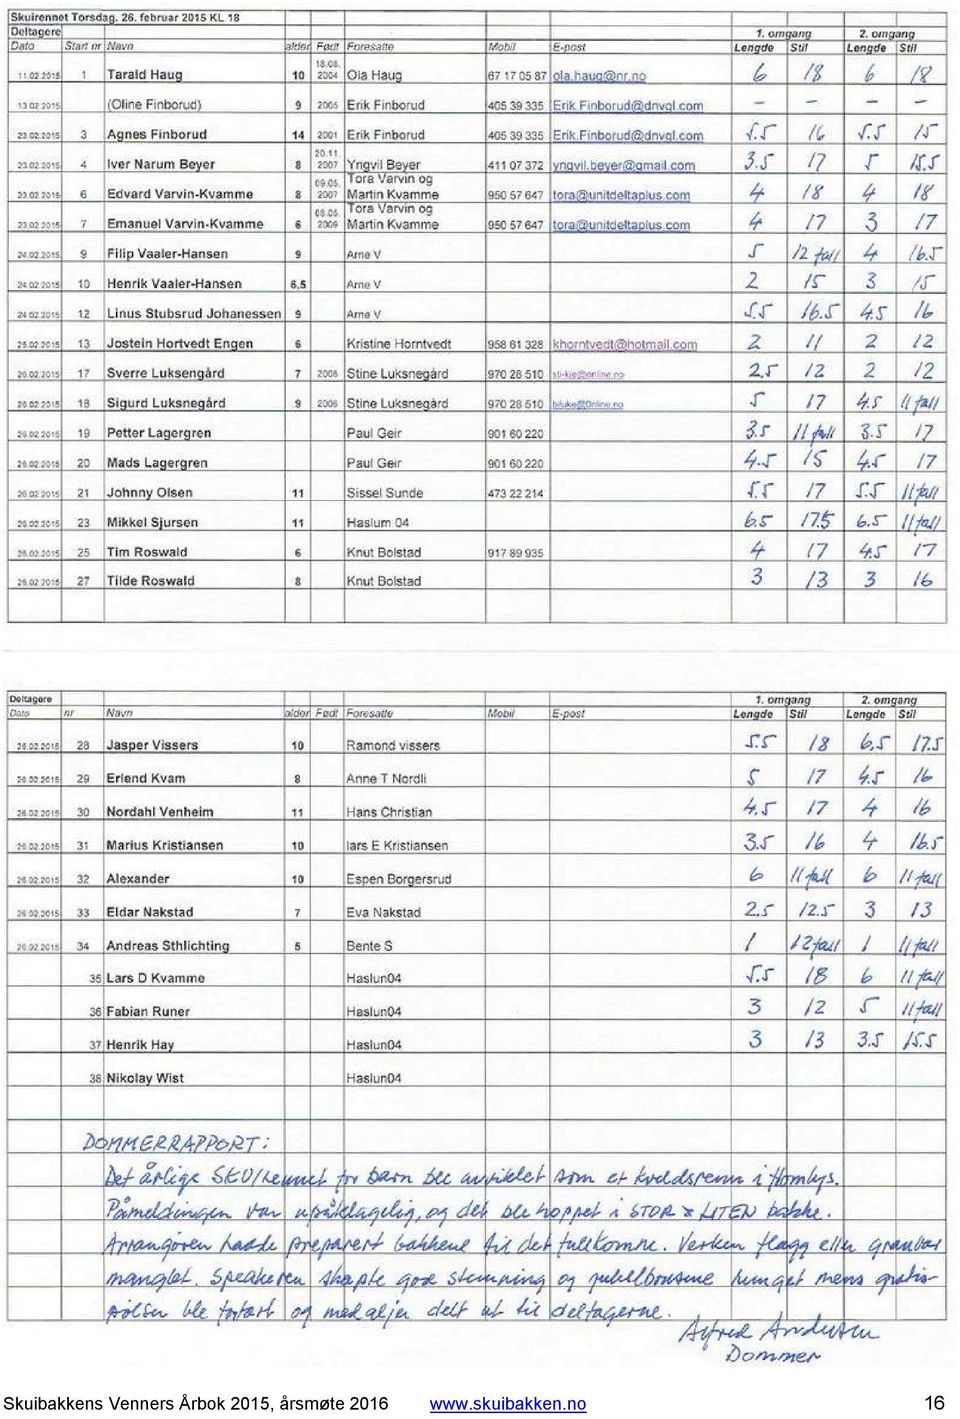 Skuirennet Torsdag. 26. februar 2015 KL 18
Deltagere 1. omgang 2. omgang
Dato Start nr Navn alder Født Foresatte Mobil E-post Lengde Stil Lengde Stil
11.02.2015 1 Tarald Haug 10 18.08. 2004 Ola Haug 67 17 05 87 ola.haug@nr.no 6 18 6 18
13.02.2015 (Oline Finborud) 9 2005 Erik Finborud 405 39 335 Erik.Finborud@dnvgl.com - - - -
23.02.2015 3 Agnes Finborud 14 2001 Erik Finborud 405 39 335 Erik.Finborud@dnvgl.com 5.5 16 5.5 15
23.02.2015 4 Iver Narum Beyer 8 20.11. 2007 Yngvil Beyer 411 07 372 yngvil.beyer@gmail.com 3.5 17 5 15.5
23.02.2015 6 Edvard Varvin-Kvamme 8 09.05. 2007 Tora Varvin og Martin Kvamme 950 57 647 tora@unitdeltaplus.com 4 18 4 18
23.02.2015 7 Emanuel Varvin-Kvamme 6 08.05. 2009 Tora Varvin og Martin Kvamme 950 57 647 tora@unitdeltaplus.com 4 17 3 17
24.02.2015 9 Filip Vaaler-Hansen 9 Arne V 5 12 fall 4 16.5
24.02.2015 10 Henrik Vaaler-Hansen 6,5 Arne V 2 15 3 15
24.02.2015 12 Linus Stubsrud Johanessen 9 Arne V 5.5 16.5 4.5 16
25.02.2015 13 Jostein Hortvedt Engen 6 Kristine Horntvedt 958 61 328 khorntvedt@hotmail.com 2 11 2 12
26.02.2015 17 Sverre Luksengård 7 2008 Stine Luksnegård 970 28 510 2.5 12 2 12
26.02.2015 18 Sigurd Luksnegård 9 2006 Stine Luksnegård 970 28 510 5 17 4.5 11 fall
26.02.2015 19 Petter Lagergren Paul Geir 901 60 220 3.5 11 fall 3.5 17
26.02.2015 20 Mads Lagergren Paul Geir 901 60 220 4.5 15 4.5 17
26.02.2015 21 Johnny Olsen 11 Sissel Sunde 473 22 214 5.5 17 5.5 11 fall
26.02.2015 23 Mikkel Sjursen 11 Haslum 04 6.5 17.5 6.5 11 fall
26.02.2015 25 Tim Roswald 6 Knut Bolstad 917 89 935 4 17 4.5 17
26.02.2015 27 Tilde Roswald 8 Knut Bolstad 3 13 3 16
Deltagere 1. omgang 2. omgang
Dato nr Navn alder Født Foresatte Mobil E-post Lengde Stil Lengde Stil
26.02.2015 28 Jasper Vissers 10 Ramond vissers 5.5 18 6.5 17.5
26.02.2015 29 Erlend Kvam 8 Anne T Nordli 5 17 4.5 16
26.02.2015 30 Nordahl Venheim 11 Hans Christian 4.5 17 4 16
26.02.2015 31 Marius Kristiansen 10 lars E Kristiansen 3.5 16 4 16.5
26.02.2015 32 Alexander 10 Espen Borgersrud 6 11 fall 6 11 fall
26.02.2015 33 Eldar Nakstad 7 Eva Nakstad 2.5 12.5 3 13
26.02.2015 34 Andreas Sthlichting 5 Bente S 1 12 fall 1 11 fall
35 Lars D Kvamme Haslun04 5.5 18 6 11 fall
36 Fabian Runer Haslun04 3 12 5 11 fall
37 Henrik Hay Haslun04 3 13 3.5 15.5
38 Nikolay Wist Haslun04
DOMMERRAPPORT:
Det årlige SKUIrennet for barn ble avviklet som et kveldsrenn i flomlys.
Påmeldingen var upåklagelig, og det ble hoppet i STOR & LITEN bakke.
Arrangøren hadde preparert bakkene til det fullkomne. Verken flagg eller granbar
manglet. Speakeren skapte god stemning og jubelbrusene runget mens gratis-
pølser ble fortært og medaljer delt ut til deltagerne.
Alfred Andersen
Dommer
Skuibakkens Venners Årbok 2015, årsmøte 2016 www.skuibakken.no 16